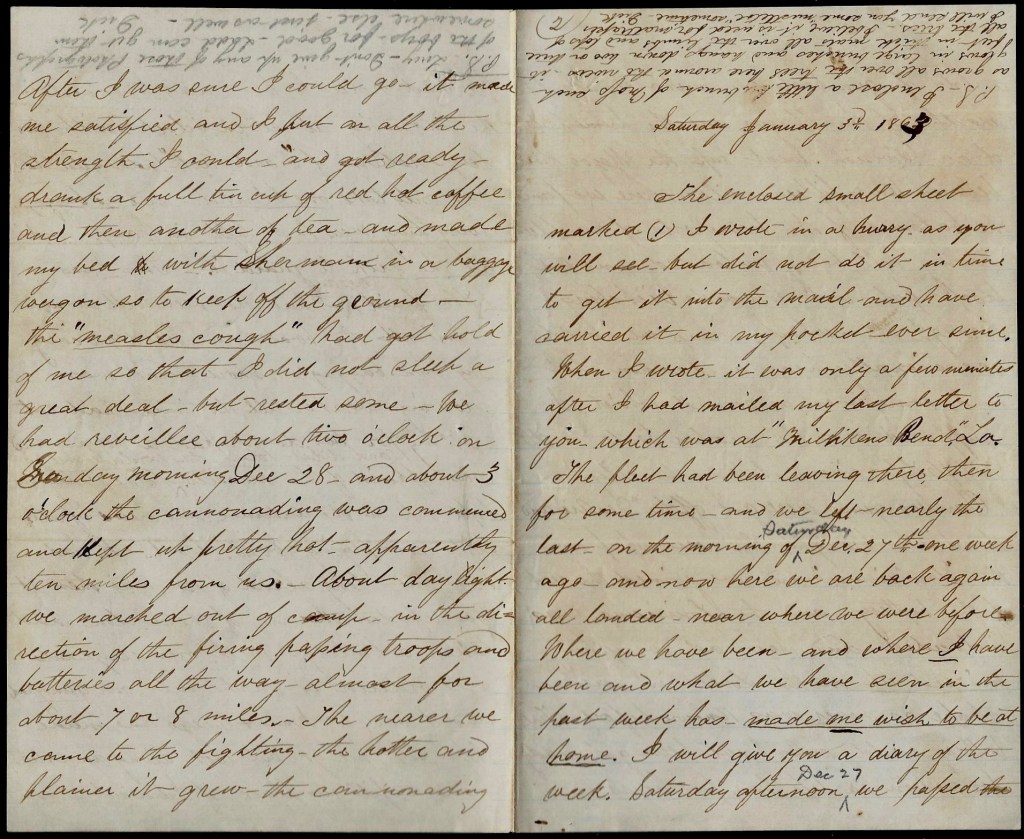 P.S. Lucy - Don't give up any of those Photographs
of the boys - for good - can get them
somewhere else - just as well -
Dick
After I was sure I could go - it made
me satisfied and I put on all the
strength I could - and got ready -
drank a full tin cup of red hot coffee
and then another of tea - and made
my bed with Sherman in a baggge
wagon so to keep off the ground -
the "measles cough" had got hold
of me so that I did not sleep a
great deal - but rested some - We
had reveillee about two o'clock on
Sunday morning Dec 28 - and about 3
o'clock the cannonading was commenced
and kept up pretty hot - apparently
ten miles from us. - About daylight
we marched out of camp - in the di=
rection of the firing passing troops and
batteries all the way almost for
about 7 or 8 miles. - The nearer we
came to the fighting - the hotter and
plainer it grew - the cannonading
P.S - I enclose a little bunch of Moss such
as grows all over the trees here around the rivers - it
grows in large bunches and hangs down two or three
feet - in thick mats all over the limbs and tops of
all the trees I believe it is used for mattrasses
I will send you some mistletoe sometime Dick
Saturday January 3d 1863
The enclosed small sheet
marked (1) I wrote in a hurry as you
will see - but did not do it in time
to get it into the mail - and have
carried it in my pocket ever since.
When I wrote - it was only a few minutes
after I had mailed my last letter to
you - which was at "Millikens Bend," La.
The fleet had been leaving there, then
for some time - and we left - nearly the
last - on the morning of Saturday Dec. 27th - one week
ago - and now here we are back again
all landed - near where we were before -
Where we have been - and where I have
been and what we have seen in the
past week has - made me wish to be at
home. I will give you a diary of the
week. Saturday afternoon Dec 27 we passed the